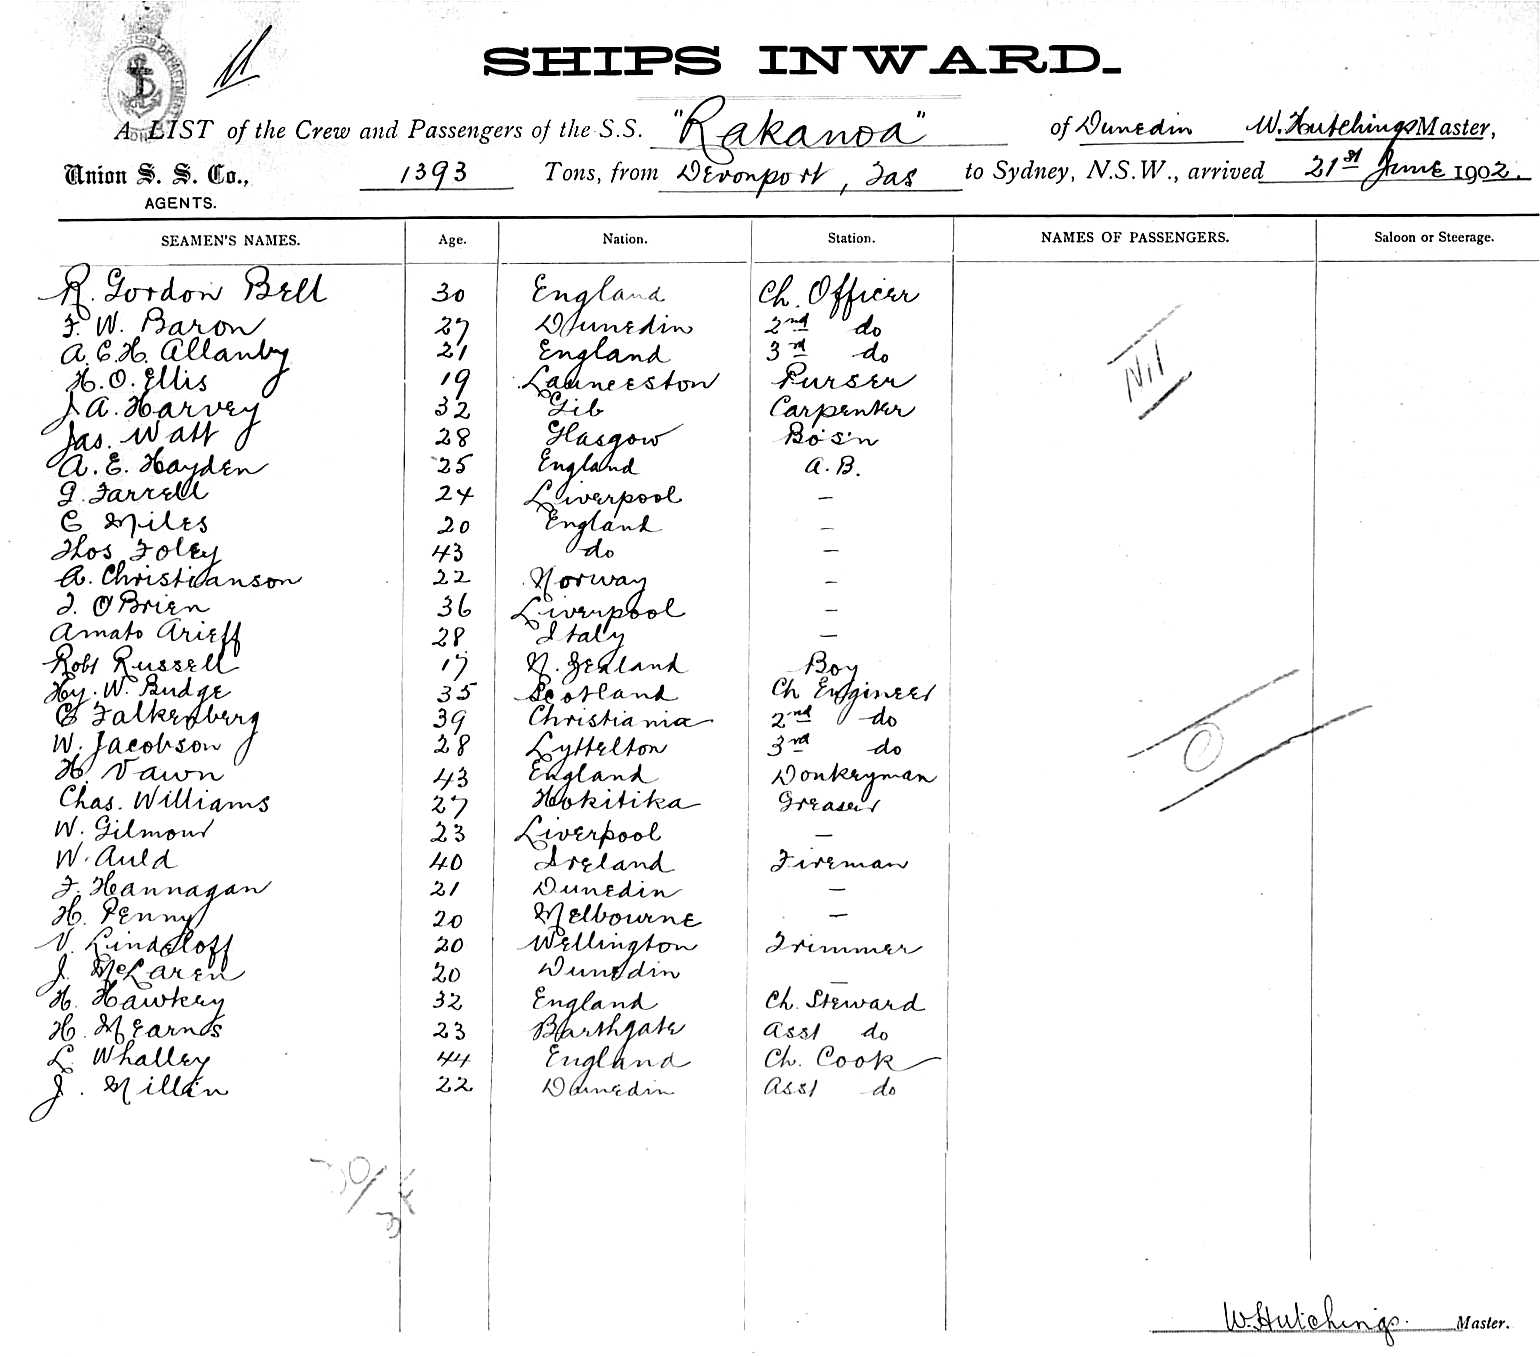 SHIPS INWARD.
A LIST of the Crew and Passengers of the S.S. "Rakanoa" of Dunedin W. Hutchings Master,
Union S. S. Co., 1393 Tons, from Devonport, Tas to Sydney, N.S.W., arrived 21st June 1902.
AGENTS.
SEAMEN'S NAMES. Age. Nation. Station. NAMES OF PASSENGERS. Saloon or Steerage.
R. Gordon Bell 30 England Ch. Officer
F. W. Baron 27 Dunedin 2nd do
A. C. H. Allanby 21 England 3rd do
H. O. Ellis 19 Launceston Purser
Nil
J. A. Harvey 32 Gib Carpenter
Jas. Watt 28 Glasgow Bo's'n
A. E. Hayden 25 England A.B.
G. Farrell 24 Liverpool —
C Miles 20 England —
Thos Foley 43 do —
A. Christianson 22 Norway —
J. O'Brien 36 Liverpool —
Amato Arieff 28 Italy —
Robt Russell 17 N. Zealand Boy
Hy. W. Budge 35 Scotland Ch Engineer
C Falkenberg 39 Christiania 2nd do
W. Jacobson 28 Lyttelton 3rd do
H. Vawn 43 England Donkeyman
Chas. Williams 27 Hokitika Greaser
W. Gilmour 23 Liverpool —
W. Auld 40 Ireland Fireman
F. Hannagan 21 Dunedin —
H. Penny 20 Melbourne —
V. Lindeloff 20 Wellington Trimmer
J. McLaren 20 Dunedin —
H. Hawkey 32 England Ch. Steward
H. Mearns 23 Barthgate Asst do
L. Whalley 44 England Ch. Cook
J. Millin 22 Dunedin Asst do
W. Hutchings. Master.